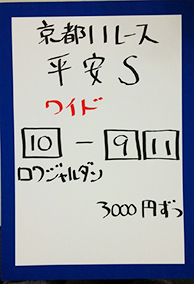 京都11レース
平安S
ワイド
10 - 9 11
ロワジャルダン
3000円ずつ